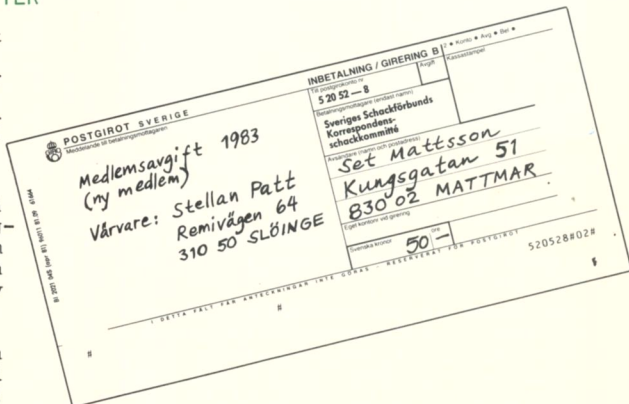 TER
POSTGIROT SVERIGE
Meddelande till betalningsmottagaren
Medlemsavgift 1983
(ny medlem)
Värvare: Stellan Patt
Remivägen 64
310 50 SLÖINGE
INBETALNING / GIRERING B
Till postgirokonto nr
5 20 52 — 8
Avgift
Kassastämpel
Betalningsmottagare (endast namn)
Sveriges Schackförbunds
Korrespondens-
schackkommitté
Avsändare (namn och postadress)
Set Mattsson
Kungsgatan 51
830 02 MATTMAR
Eget kontonr vid girering
Svenska kronor
öre
50 —
520528#02#
I DETTA FÄLT FÅR ANTECKNINGAR INTE GÖRAS - RESERVERAT FÖR POSTGIROT
#
#